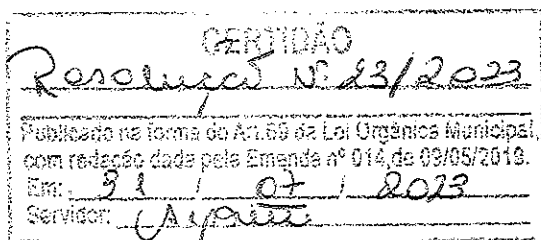 CERTIDÃO
Resolução Nº 23/2023
Publicado na forma do Art.69 da Lei Orgânica Municipal,
com redação dada pela Emenda nº 014,de 09/05/2019.
Em: 31 / 07 / 2023
Servidor: